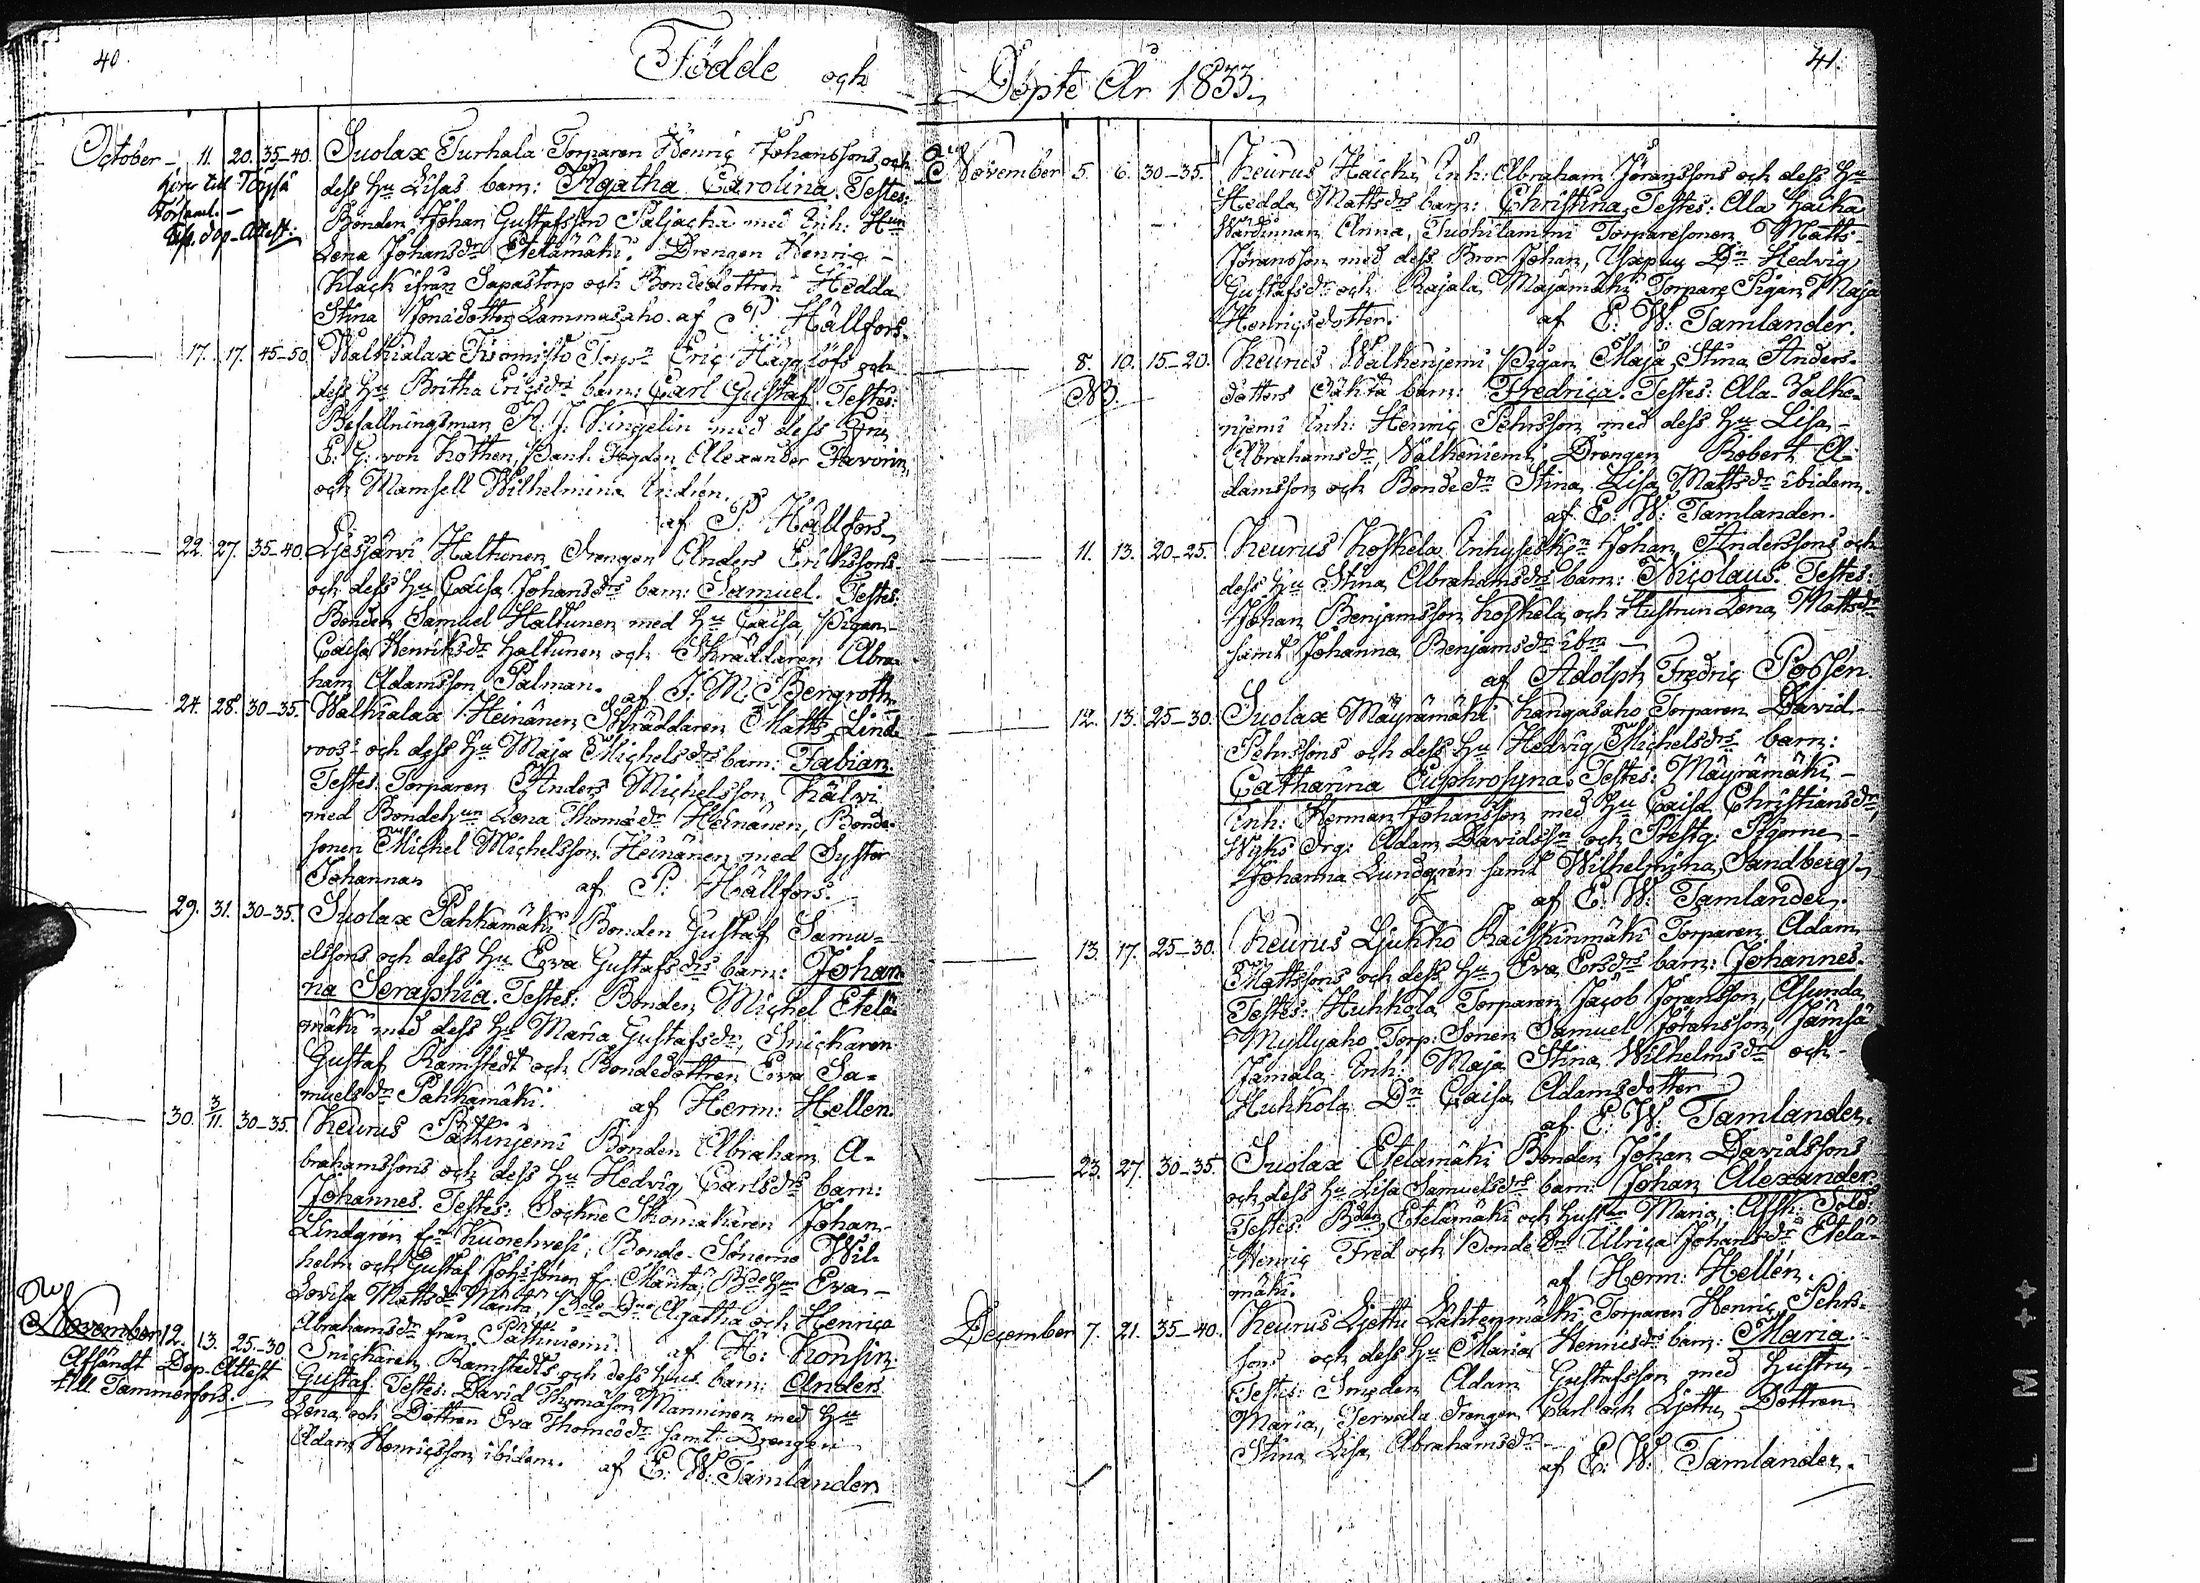 40.
Födde och
October – 11. 20. 35–40. Suolax Turhala Torparen Henric Johanssons och
hörer till Töysä
dess Hu Lisas barn: Agatha Carolina. Testes:
Församl. –
Bonden Johan Gustafsson Paljacka med Inh: Hun
dop-Attest:
Lena Johansdr Etelämäki. Drengen Henric –
Klack ifrån Sapastorp och Bondedottren Hedda
Stina Jonædotter Lammasaho. af P: Hällfors.
17. 17. 45–50. Walkialax Torpn Eric Hägglöfs och
dess Hu Britha Ericsdrs barn: Carl Gustaf. Testes:
Befallningsman A. J. Wingelin med dess Fru
E: G: von Kothen, Alexander Favorin
och Mamsell Wilhelmina Indrén.
af P. Hällfors
22. 27. 35–40. Liesjärvi Haltunen Drengen Anders Erikssons
och dess Hu Caisa Johansdrs barn: Samuel. Testes:
Bonden Samuel Haltunen med Hu Caisa, Pigan
Caisa Henriksdr Haltunen och Skräddaren Abra-
ham Adamsson Palman. af J: M: Bergroth
24. 28. 30–35. Walkialax Heinänen Skräddaren Matts Lind-
roos' och dess Hu Maja Michelsdrs barn: Fabian.
Testes: Torparen Anders Michelsson Kälvi
med Bondehun Lena Thomædr Heinänen, Bonde-
sonen Michel Michelsson Heinänen med Syster
Johanna af P: Hällfors.
29. 31. 30–35. Suolax Pahkamäki Bonden Gustaf Samu-
elssons och dess Hu Eva Gustafsdrs barn: Johan-
na Seraphia. Testes: Bonden Michel Etelä-
mäki med dess Hu Maria Gustafsdr, Snickaren
Gustaf Ramstedt och Bondedottren Eva Sa-
muelsdr Pahkamäki. af Herm: Hellen.
30. 3/11. 30–35. Keurus Pättinjemi Bonden Abraham A-
brahamssons och dess Hu Hedvig Carlsdrs barn:
Johannes. Testes: Sockne Skomakaren Johan
Lindgren fr Kuorehvesi, Bonde-Sönerne Wil-
helm och Gustaf Johssöner fr Mänta, Bdehun Eva –
Lovisa Mattsdr Mänta, Agatha och Henrica
Abrahamsdr från Pättiniemi. af H: Konsin.
November 12. 13. 25–30 Snickaren Ramstedts och dess Hus barn: Anders
Afsändt Dop-Attest
Gustaf. Testes: David Thomasson Manninen med Hu
till Tammerfors.
Lena och Dottren Eva Thomædr samt Drengen
Adam Henricsson ibidem. af E: W: Tamlander
41.
Döpte År 1833.
November 5. 6. 30–35. Keurus Haicka Inh: Abraham Jöranssons och dess Hu
Hedda Mattsdrs barn: Christina. Testes: Ala Haika
Wärdinnan Anna, Tuohilammi Torparesonen Matts
Jöransson med dess Bror Johan, Dn Hedvig
Gustafsdr och Rajala Majamäki Torpare Pigan Maja
Henricsdotter. af E: W: Tamlander.
8. 10. 15–20. Keurus Walkenjemi Pigan Maja Stina Anders-
NB.
dotters Oäkta barn: Fredrica. Testes: Ala-Valke-
njemi Inh: Henric Pehrsson med dess Hu Lisa –
Abrahamsdr, Walkeniemi Drengen Robert A-
damsson och Bondedn Stina Lisa Mattsdr ibidem.
af E: W: Tamlander.
11. 13. 20–25. Keurus Koskela Johan Anderssons och
dess Hu Stina Abrahamsdrs barn: Nicolaus. Testes:
Johan Benjamsson Koskela och Hustrun Lena Mattsdr
samt Johanna Benjamsdr ibm –
af Adolph Fredric Possén.
12. 13. 25–30. Suolax Mäyrämäki Kangasaho Torparen David
Pehrssons och dess Hu Hedvig Michelsdrs barn:
Catharina Euphrosyna. Testes: Mäyrämäki –
Inh: Herman Johansson med Hu Caisa Christiansdr,
Wyks Drg: Adam Davidssn och Prestg: Pigorne –
Johanna Lundgren samt Wilhelmina Sandberg
af E: W: Tamlander.
13. 17. 25–30. Keurus Ljukko Raiskinmäki Torparen Adam
Mattssons och dess Hu Eva Ersdrs barn: Johannes.
Testes: Huhkola Torparen Jacob Jöransson, Asunda
Myllyaho Torp: Sonen Samuel Jöransson, Jämsä
Jamala Inh: Maja Stina Wilhelmsdr och
Huhkola Dn Caisa Adamsdotter
af E: W: Tamlander.
23. 27. 30–35. Suolax Etelämäki Bonden Johan Davidssons
och dess Hu Lisa Samuelsdrs barn: Johan Alexander.
Testes: Bden Etelämäki och Hustrun Maria, Afsk: Sold:
Henric Fred och Bonde Dn Ulrica Johansdr Etelä-
mäki. af Herm: Hellén.
December 7. 21. 35–40. Keurus Ljettu Lahtenmäki Torparen Henric Pehrs-
sons och dess Hu Maria Henricsdrs barn: Maria.
Testes: Smeden Adam Gustafsson med Hustru
Maria, Tervala Drengen Carl och Ljettu Dottren
Stina Lisa Abrahamsdr –
af E: W: Tamlander.
I L M